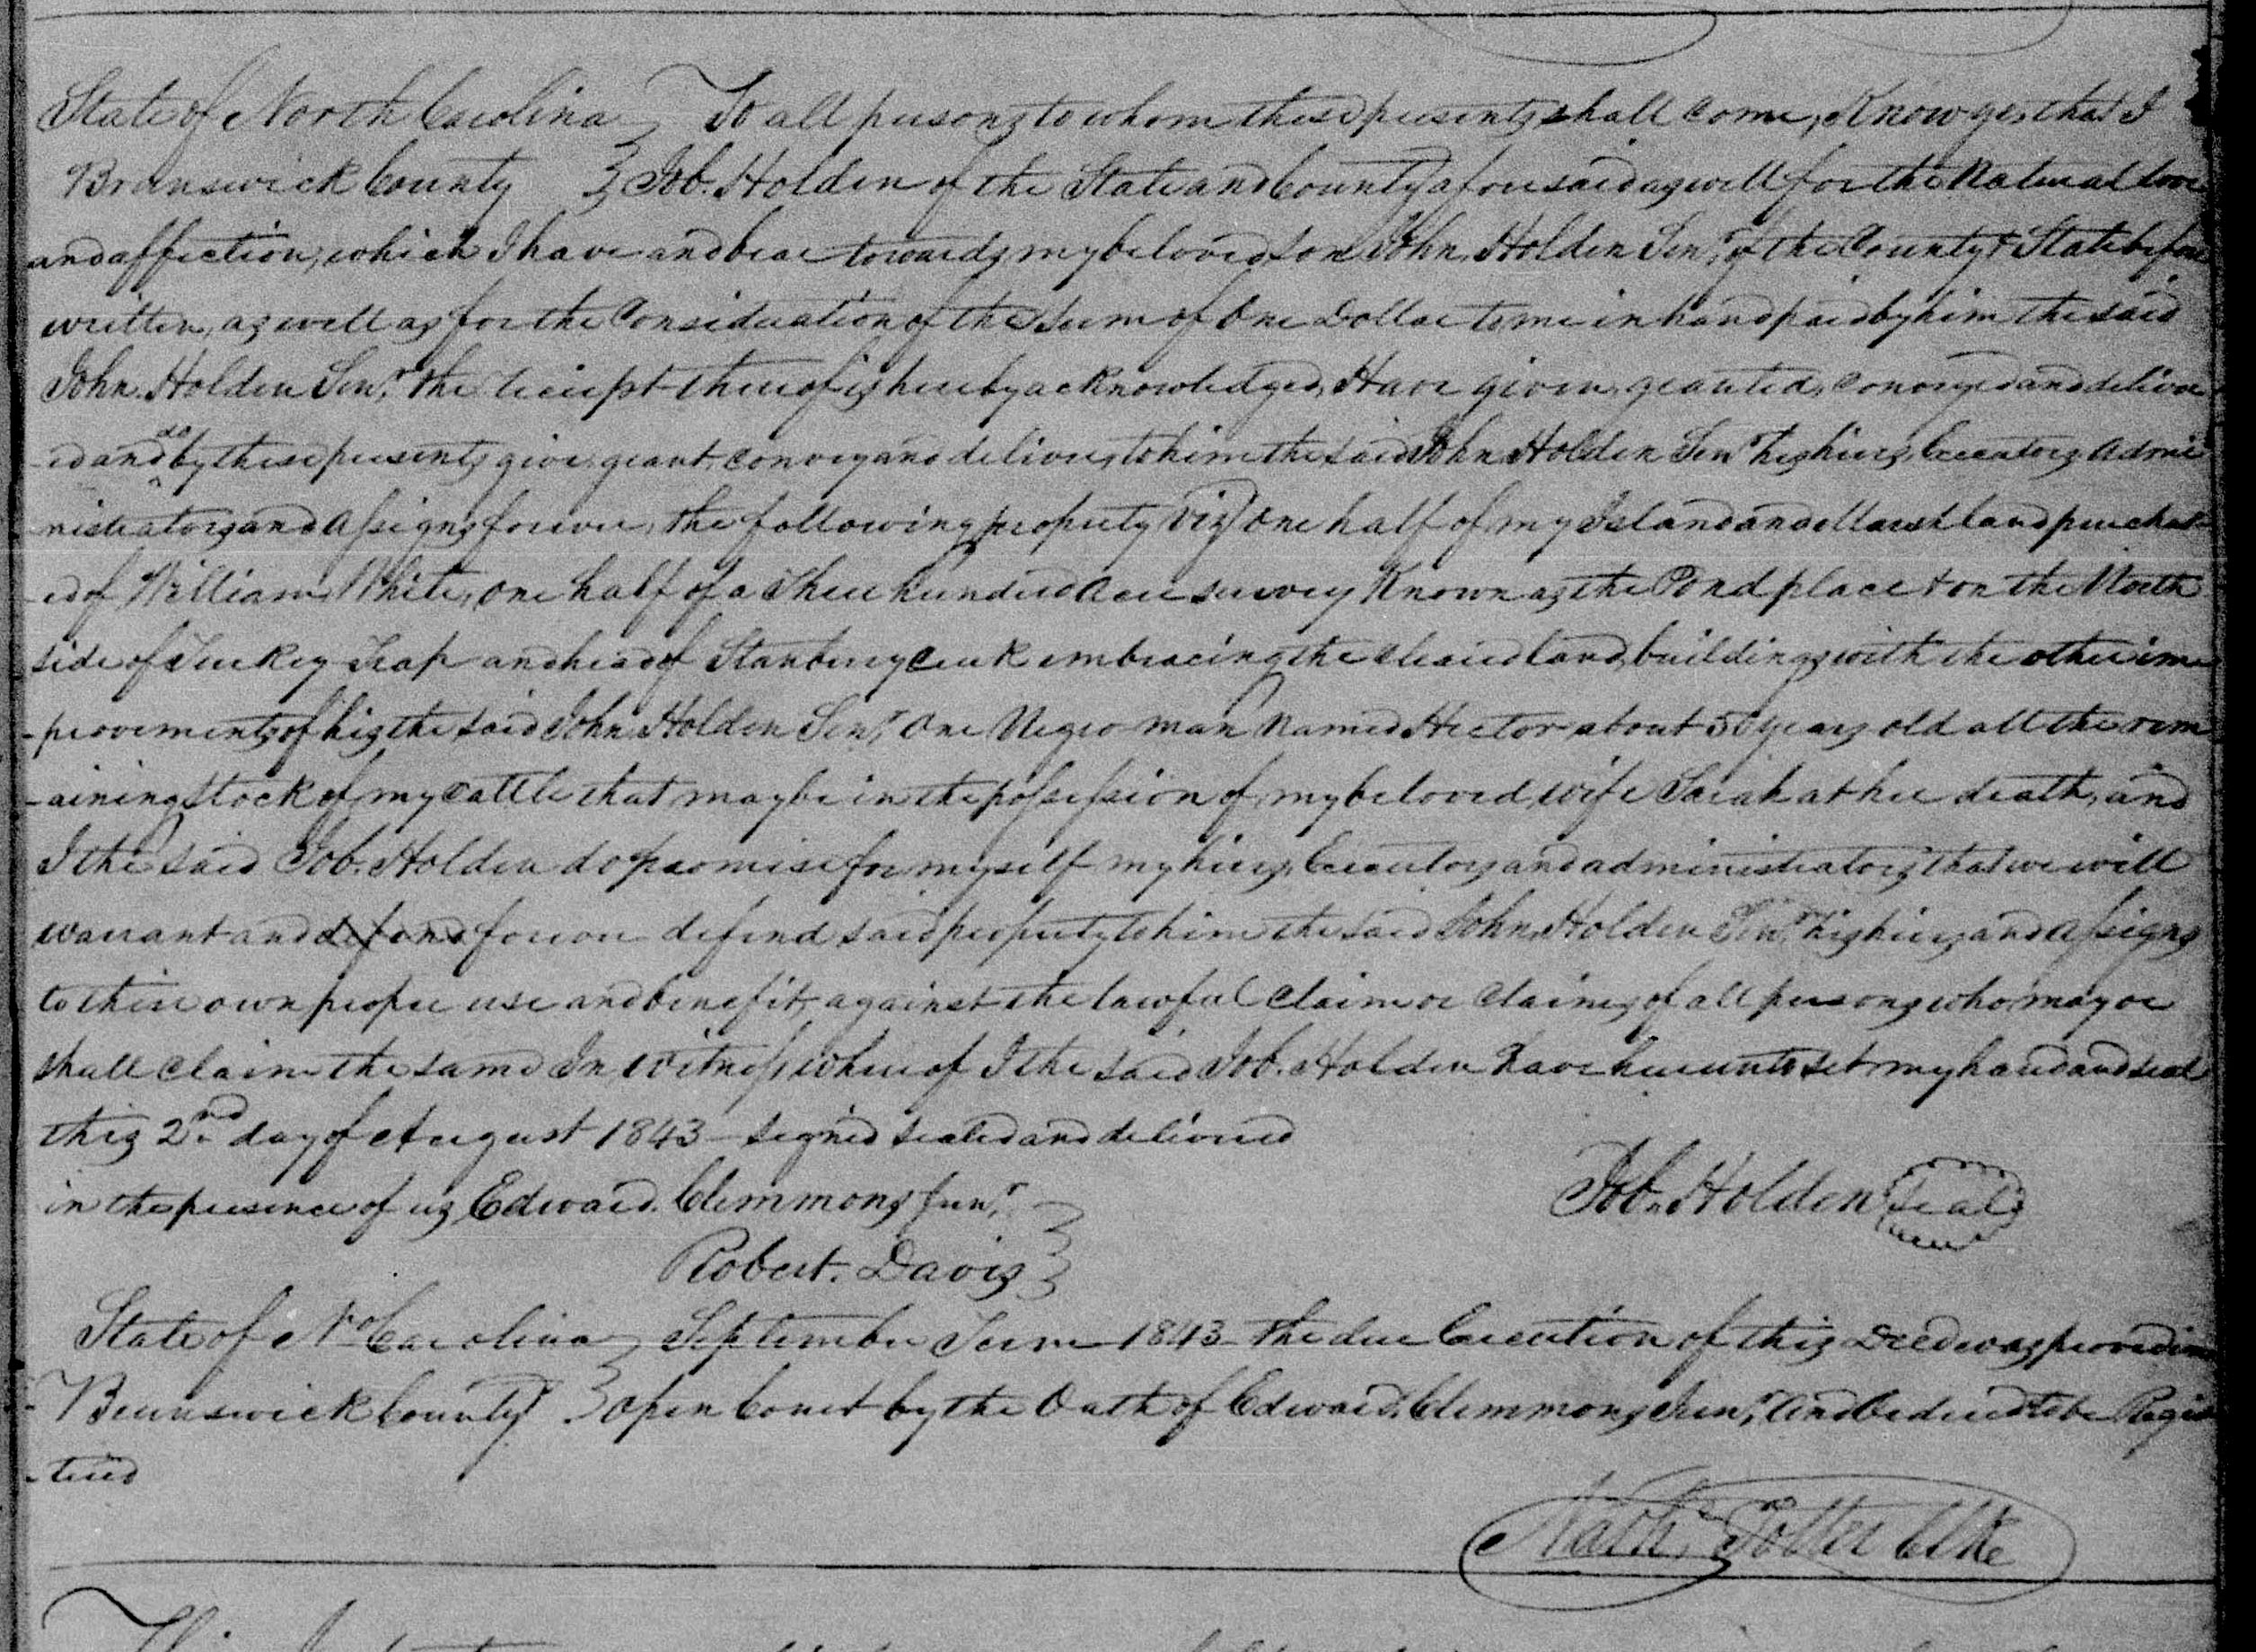 State of North Carolina } To all persons to whom these presents shall come, Know ye, that I
Brunswick County } Job. Holden of the State and County aforesaid as well for the Natural love
and affection, which I have and bear towards my beloved son John Holden Senr, of the County & State before
written, as well as for the Consideration of the Sum of One Dollar to me in hand paid by him the said
John. Holden Senr, the receipt thereof is hereby acknowledged, Have given, granted, Conveyed and deliver
-ed and do by these presents give, grant, convey and deliver, to him the said John Holden Senr his heirs, Executors Admi
-nistrators and Assigns forever, the following property (viz) One half of my Island and Marsh land purchas-
-ed of William White, one half of a three hundred acre survey Known as the Pond place & on the North
side of Turkey Trap and head of Stanbery creek embracing the cleared land, buildings with the other im
-provements of his the said John Holden Senr, One Negro man Named Hector about 50 years old all the rem
-aining Stock of my cattle that may be in the possession of, my beloved, wife Sarah at her death, and
I the said Job. Holden do promise for myself my heirs, Executors and administrators that we will
warrant and defend forever defend said property to him the said John Holden Senr, his heirs and assigns
to their own proper use and benefit, against the lawful Claim or Claims of all persons who may or
shall Claim the same In witness whereof I the said Job. Holden have hereunto set my hand and seal
this 2nd day of August 1843 - signed sealed and delivered
in the presence of us Edward. Clemmons Junr, }
Job. Holden Seal
Robert. Davis }
State of No Carolina } September Term 1843 - The due Execution of this Deed was proved in
Brunswick County } Open Court by the Oath of Edward. Clemmons Junr, And Ordered to be Regis
-tered
Nathl Potter Clke